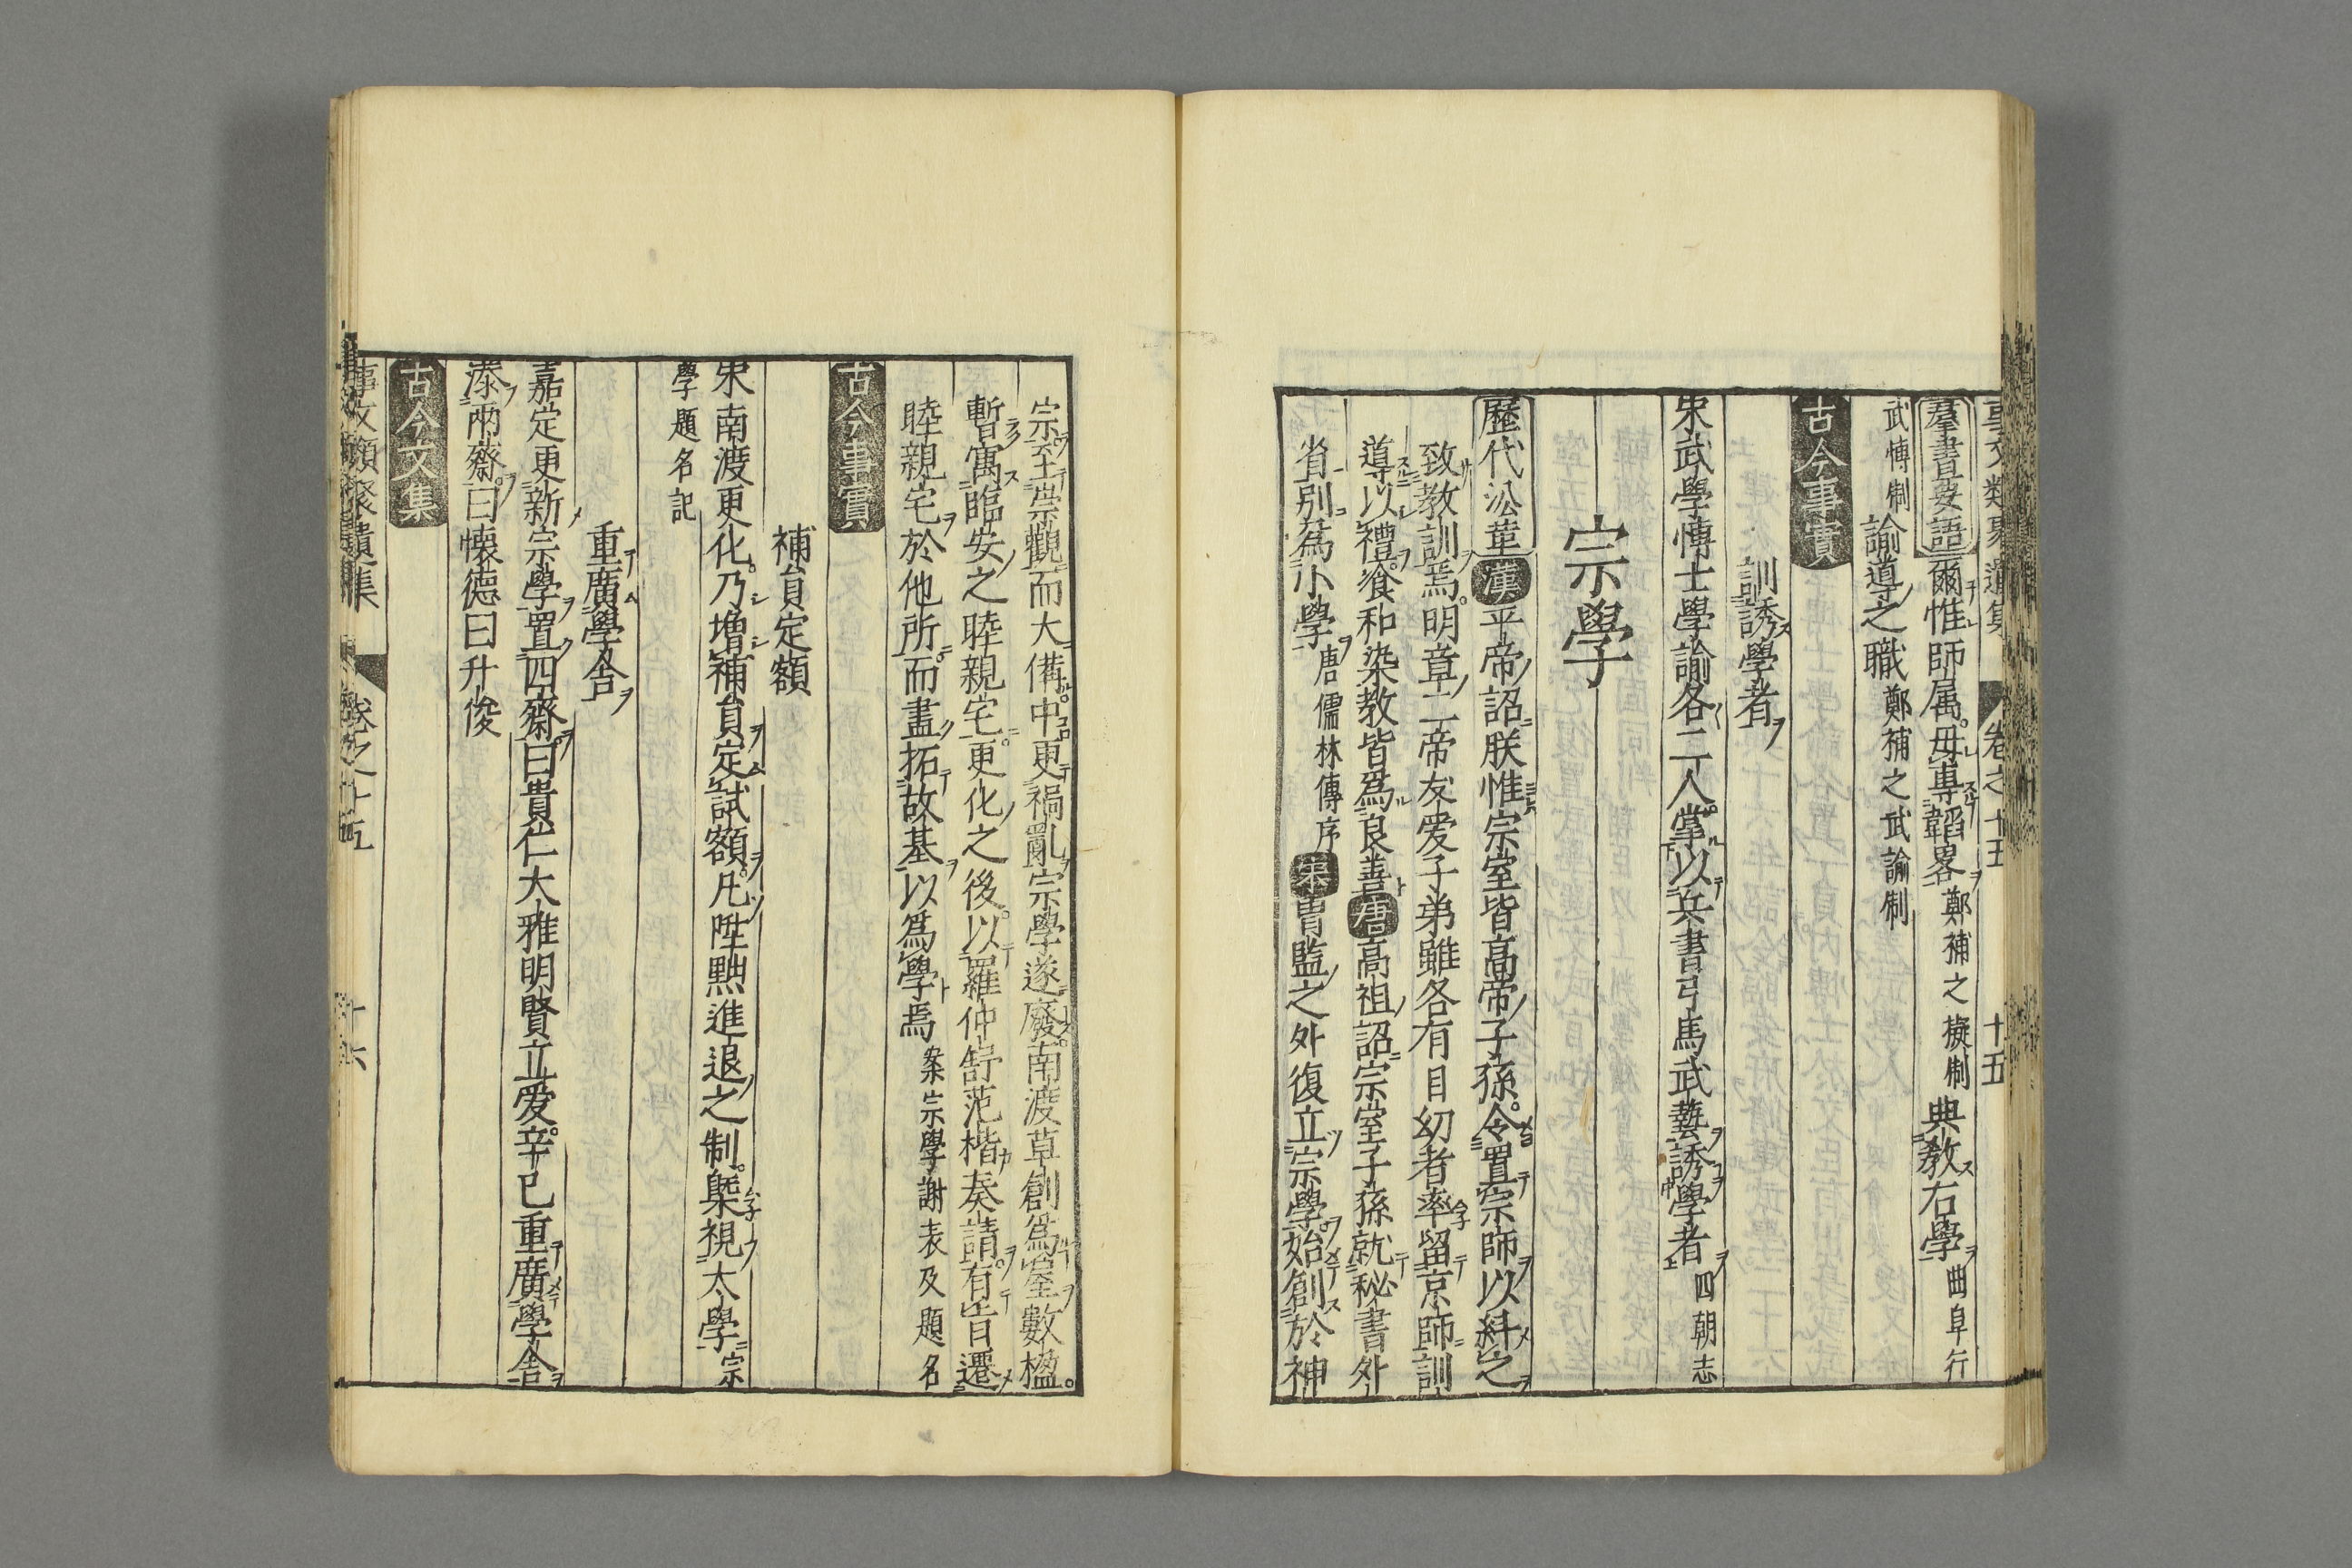 事文類聚遺集 卷之十五 十五
羣書要語 爾惟師属毋專韜畧鄭補之擬制典教右學曲阜行
武愽制諭導之職鄭補之武諭制
古今事實
訓誘學者
宋武學愽士學諭各二人掌以兵書弓馬武藝誘學者四朝志
宗學
歷代㳂革 漢平帝詔朕惟宗室皆高帝子孫令置宗師以糾之
致教訓焉明章二帝友爱子弟雖各有目幼者率留京師訓
導以禮飡和染教皆爲良善唐高祖詔宗室子孫就秘書外
省別爲小學唐儒林傳序宋胄監之外復立宗學始創於神
宗至崇觀而大備中更禍亂宗學遂廢南渡草創爲屋數楹
暫寓臨安之睦親宅更化之後以羅仲舒范楷奏請有旨遷
睦親宅於他所而盡拓故基以爲學焉案宗學謝表及題名
古今事實
補負定額
宋南渡更化乃增補負定試額凡陞黜進退之制槩視太學宗
學題名記
重廣學舍
嘉定更新宗學置四齋曰貴仁大雅明賢立爱辛巳重廣學舍
㴞兩齋曰懷德曰升俊
古今文集
事文類聚遺集 卷之十五 十六